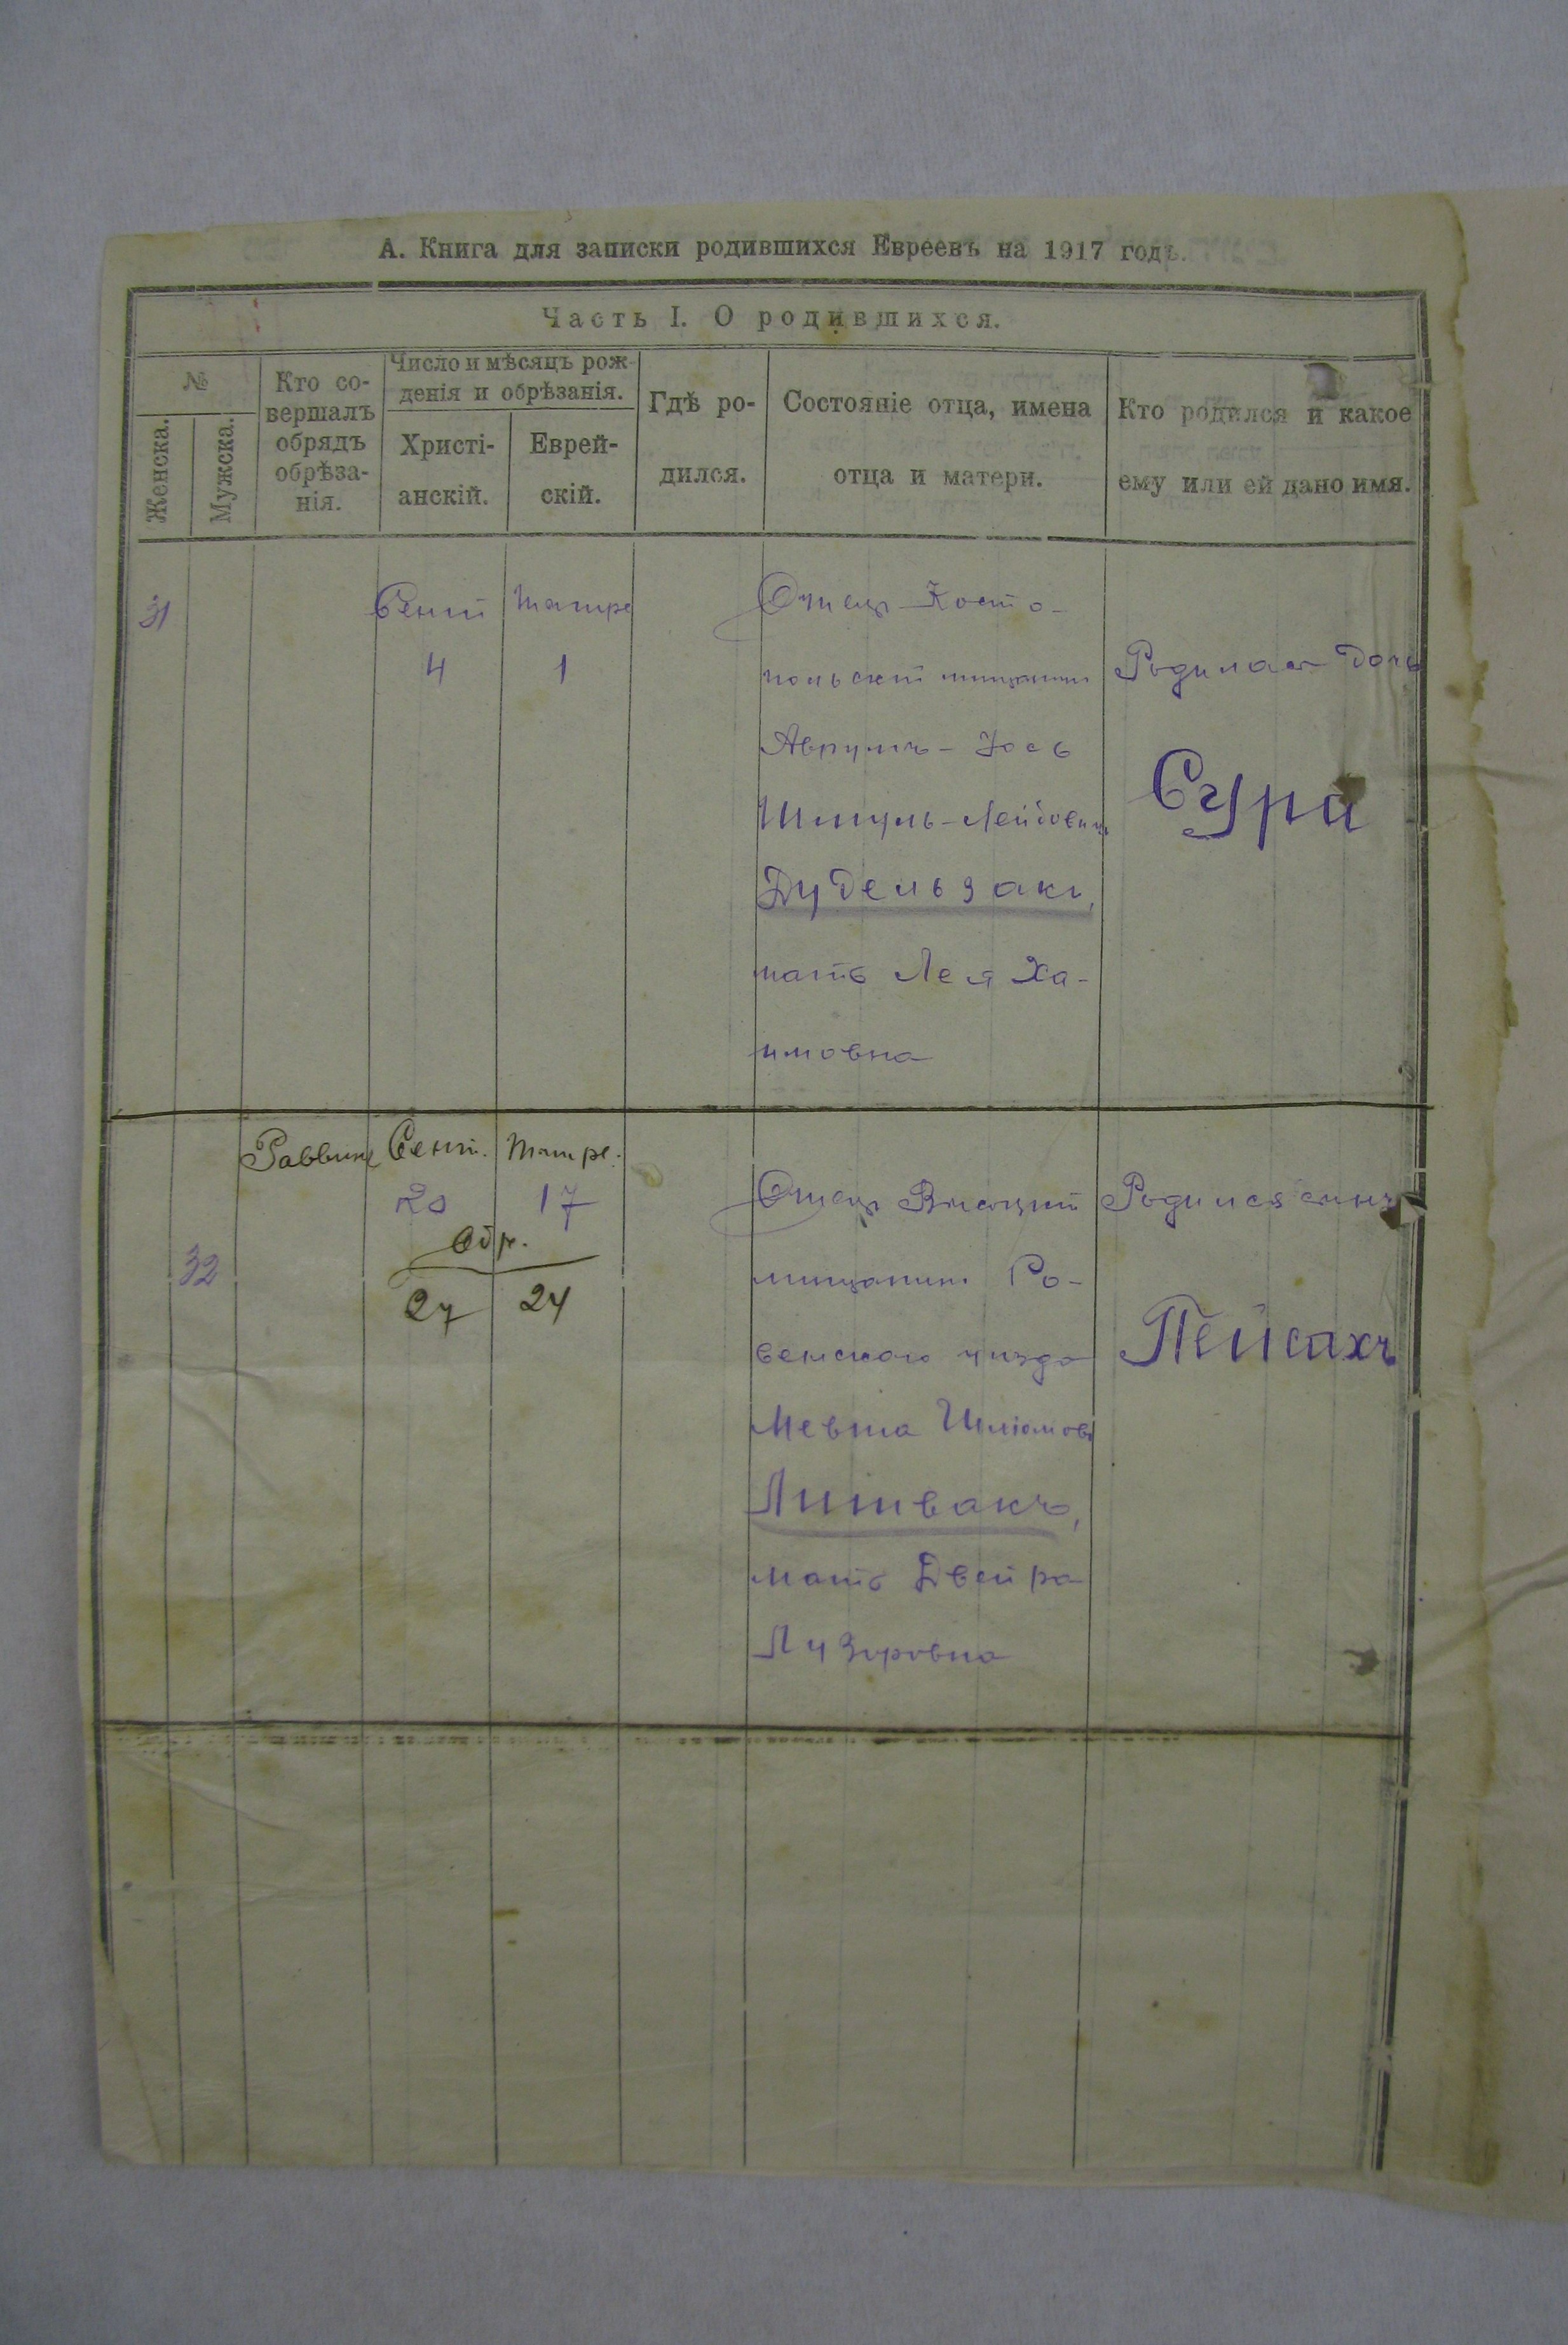 А. Книга для записки родившихся Евреевъ на 1917 годъ.
Часть I. О родившихся.
№
Женска.
Мужска.
Кто со-
вершалъ
обрядъ
обрѣза-
нія.
Число и мѣсяцъ рож-
денія и обрѣзанія.
Христі-
анскій.
Еврей-
скій.
Гдѣ ро-
дился.
Состояніе отца, имена
отца и матери.
Кто родился и какое
ему или ей дано имя.
31
Сент
Тишре
4
1
Отецъ Косто-
польскій мещанинъ
Аврумъ-Іось
Шмуль-Лейбовичъ
Дудельзакъ,
мать Лея Ха-
имовна
Родилась дочь
Сура
32
Раввинъ
Сент.
Тишре.
20
17
Обр.
27
24
Отецъ Высоцкій
мещанинъ Ро-
венскаго уезда
Мевша Шліомов
Литвакъ,
мать Двейра
Лузеровна
Родился сынъ
Пейсахъ